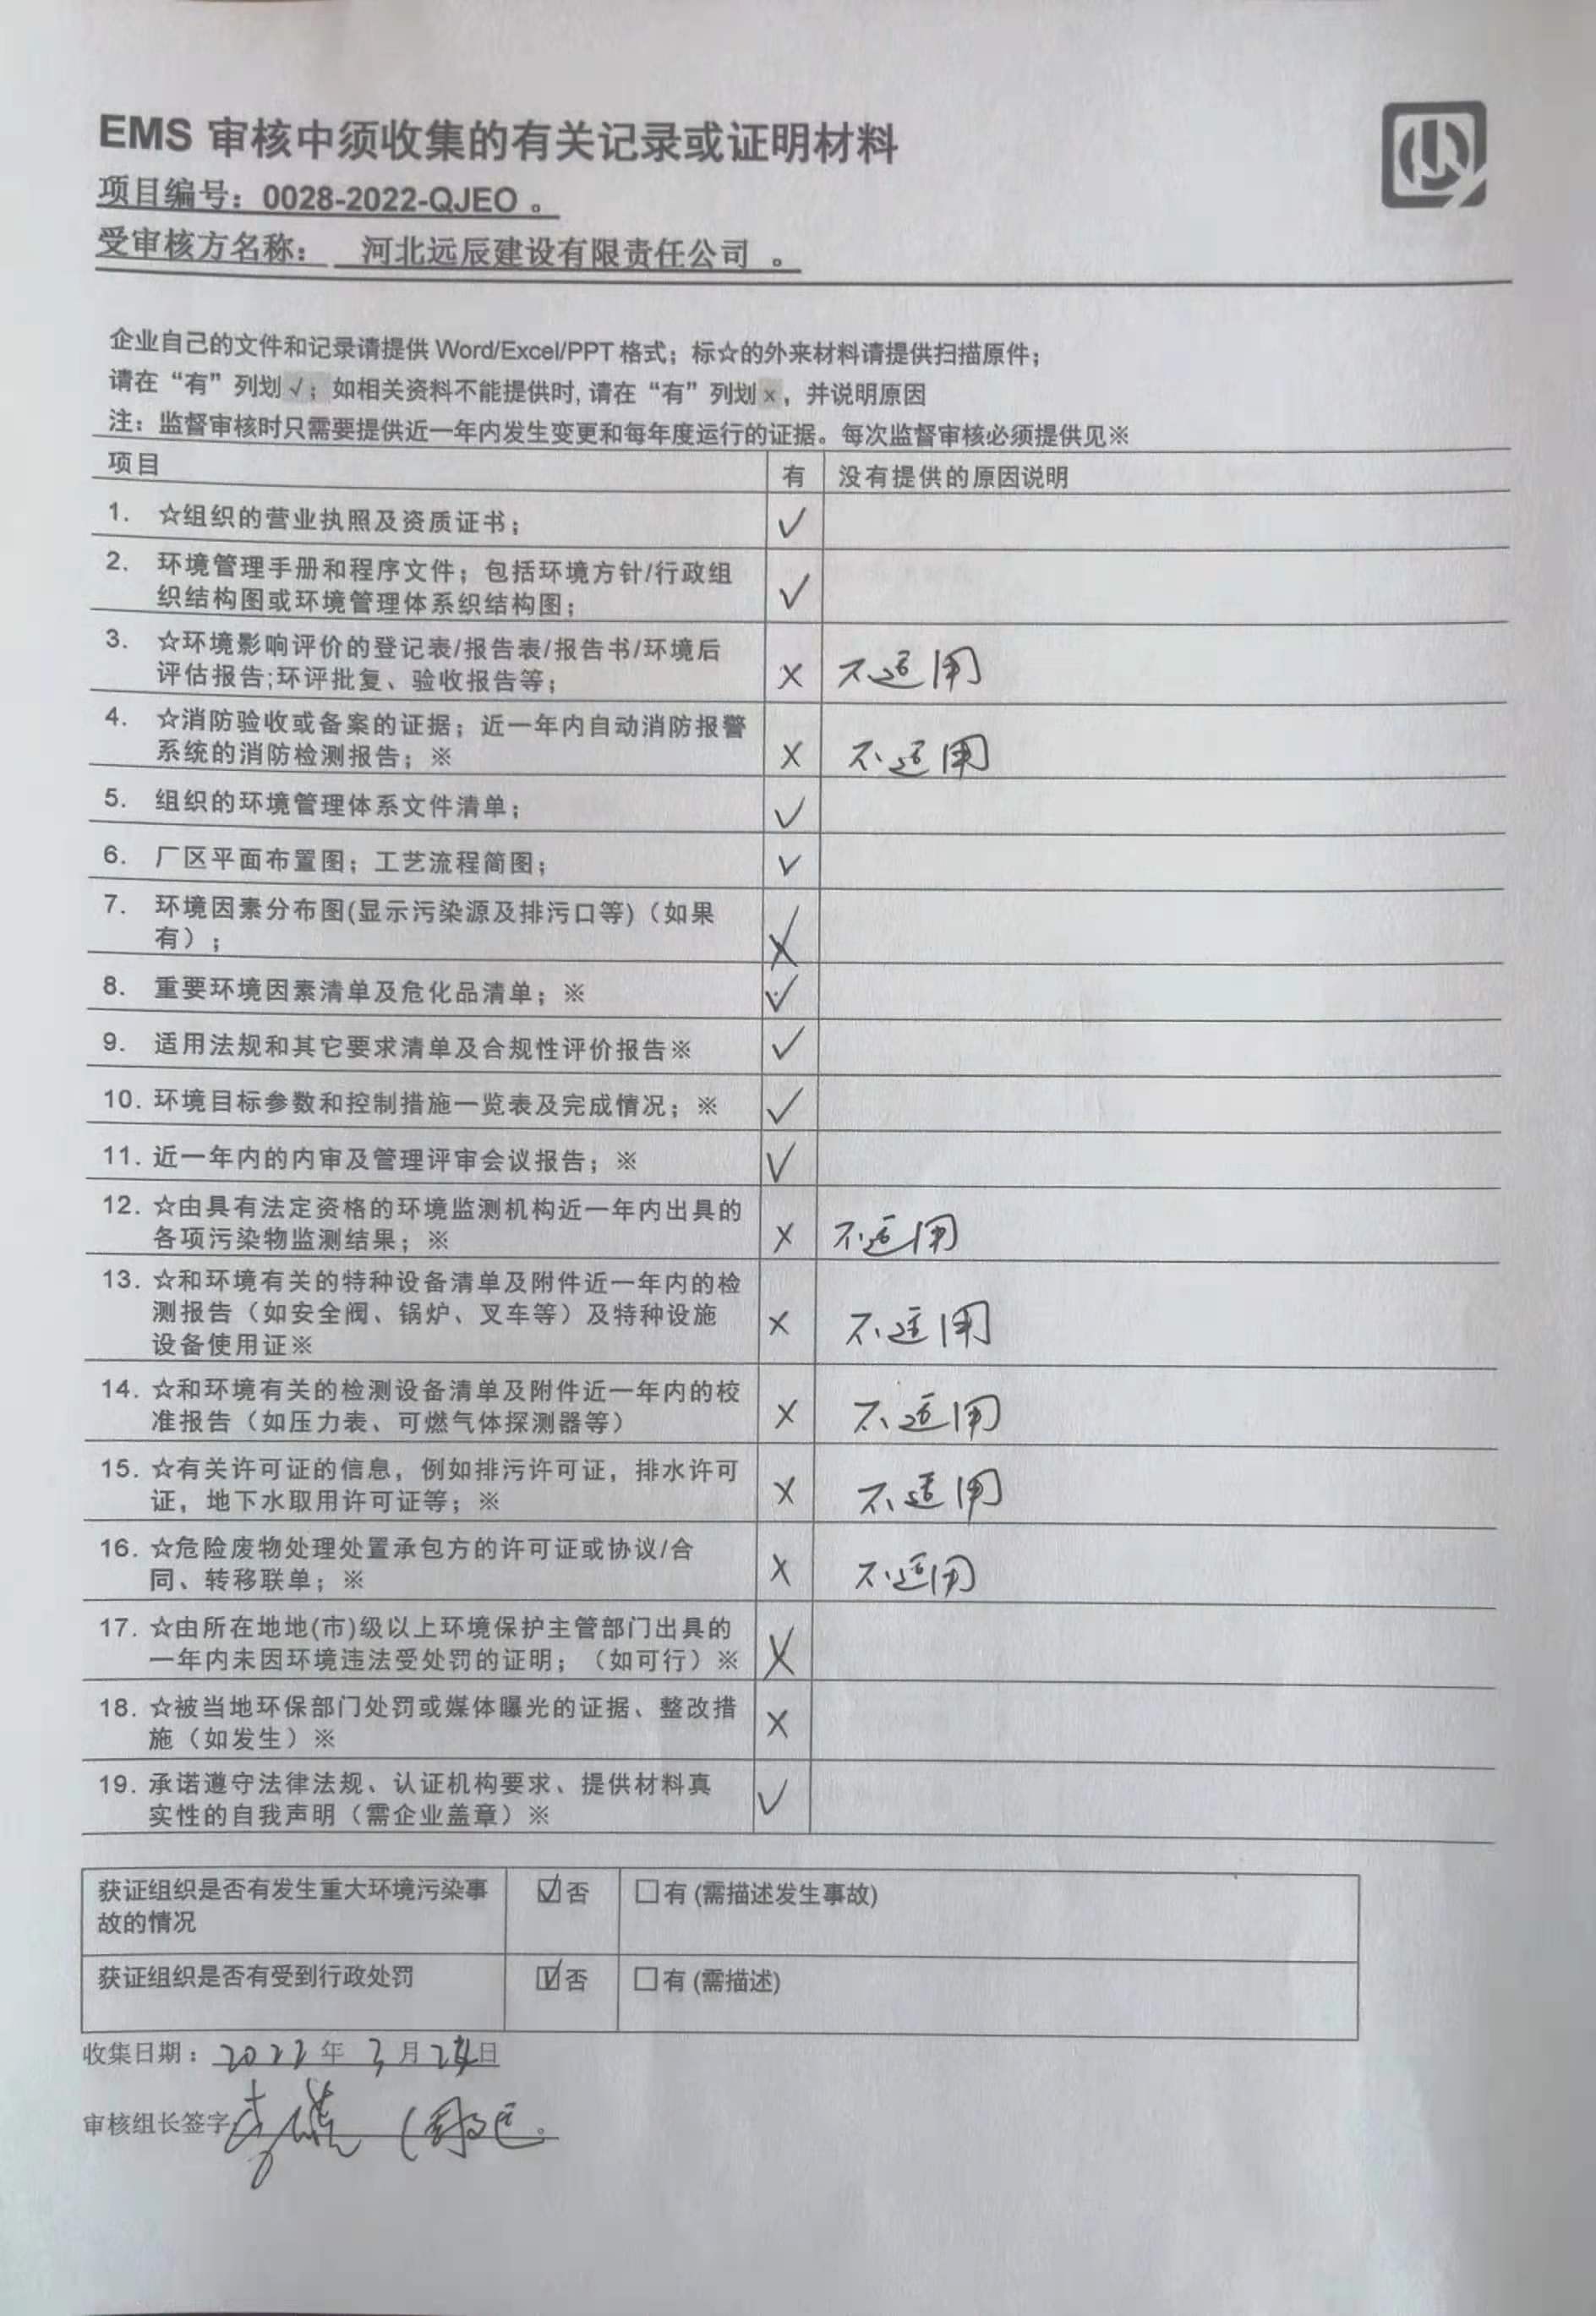 EMS 审核中须收集的有关记录或证明材料
项目编号：0028-2022-QJEO 。
受审核方名称： 河北远辰建设有限责任公司 。
企业自己的文件和记录请提供 Word/Excel/PPT 格式；标☆的外来材料请提供扫描原件；
请在“有”列划√；如相关资料不能提供时, 请在“有”列划×，并说明原因
注：监督审核时只需要提供近一年内发生变更和每年度运行的证据。每次监督审核必须提供见※
项目 有 没有提供的原因说明
1. ☆组织的营业执照及资质证书； ✓
2. 环境管理手册和程序文件；包括环境方针/行政组
织结构图或环境管理体系织结构图； ✓
3. ☆环境影响评价的登记表/报告表/报告书/环境后
评估报告;环评批复、验收报告等； × 不适用
4. ☆消防验收或备案的证据；近一年内自动消防报警
系统的消防检测报告；※ × 不适用
5. 组织的环境管理体系文件清单； ✓
6. 厂区平面布置图；工艺流程简图； ✓
7. 环境因素分布图(显示污染源及排污口等)（如果
有）； ×
8. 重要环境因素清单及危化品清单；※ ✓
9. 适用法规和其它要求清单及合规性评价报告※ ✓
10. 环境目标参数和控制措施一览表及完成情况；※ ✓
11. 近一年内的内审及管理评审会议报告；※ ✓
12. ☆由具有法定资格的环境监测机构近一年内出具的
各项污染物监测结果；※ × 不适用
13. ☆和环境有关的特种设备清单及附件近一年内的检
测报告（如安全阀、锅炉、叉车等）及特种设施
设备使用证※ × 不适用
14. ☆和环境有关的检测设备清单及附件近一年内的校
准报告（如压力表、可燃气体探测器等） × 不适用
15. ☆有关许可证的信息，例如排污许可证，排水许可
证，地下水取用许可证等；※ × 不适用
16. ☆危险废物处理处置承包方的许可证或协议/合
同、转移联单；※ × 不适用
17. ☆由所在地地(市)级以上环境保护主管部门出具的
一年内未因环境违法受处罚的证明；（如可行）※ ×
18. ☆被当地环保部门处罚或媒体曝光的证据、整改措
施（如发生）※ ×
19. 承诺遵守法律法规、认证机构要求、提供材料真
实性的自我声明（需企业盖章）※ ✓
获证组织是否有发生重大环境污染事
故的情况 ☑否 □有 (需描述发生事故)
获证组织是否有受到行政处罚 ☑否 □有 (需描述)
收集日期：2022 年 3 月 日
审核组长签字